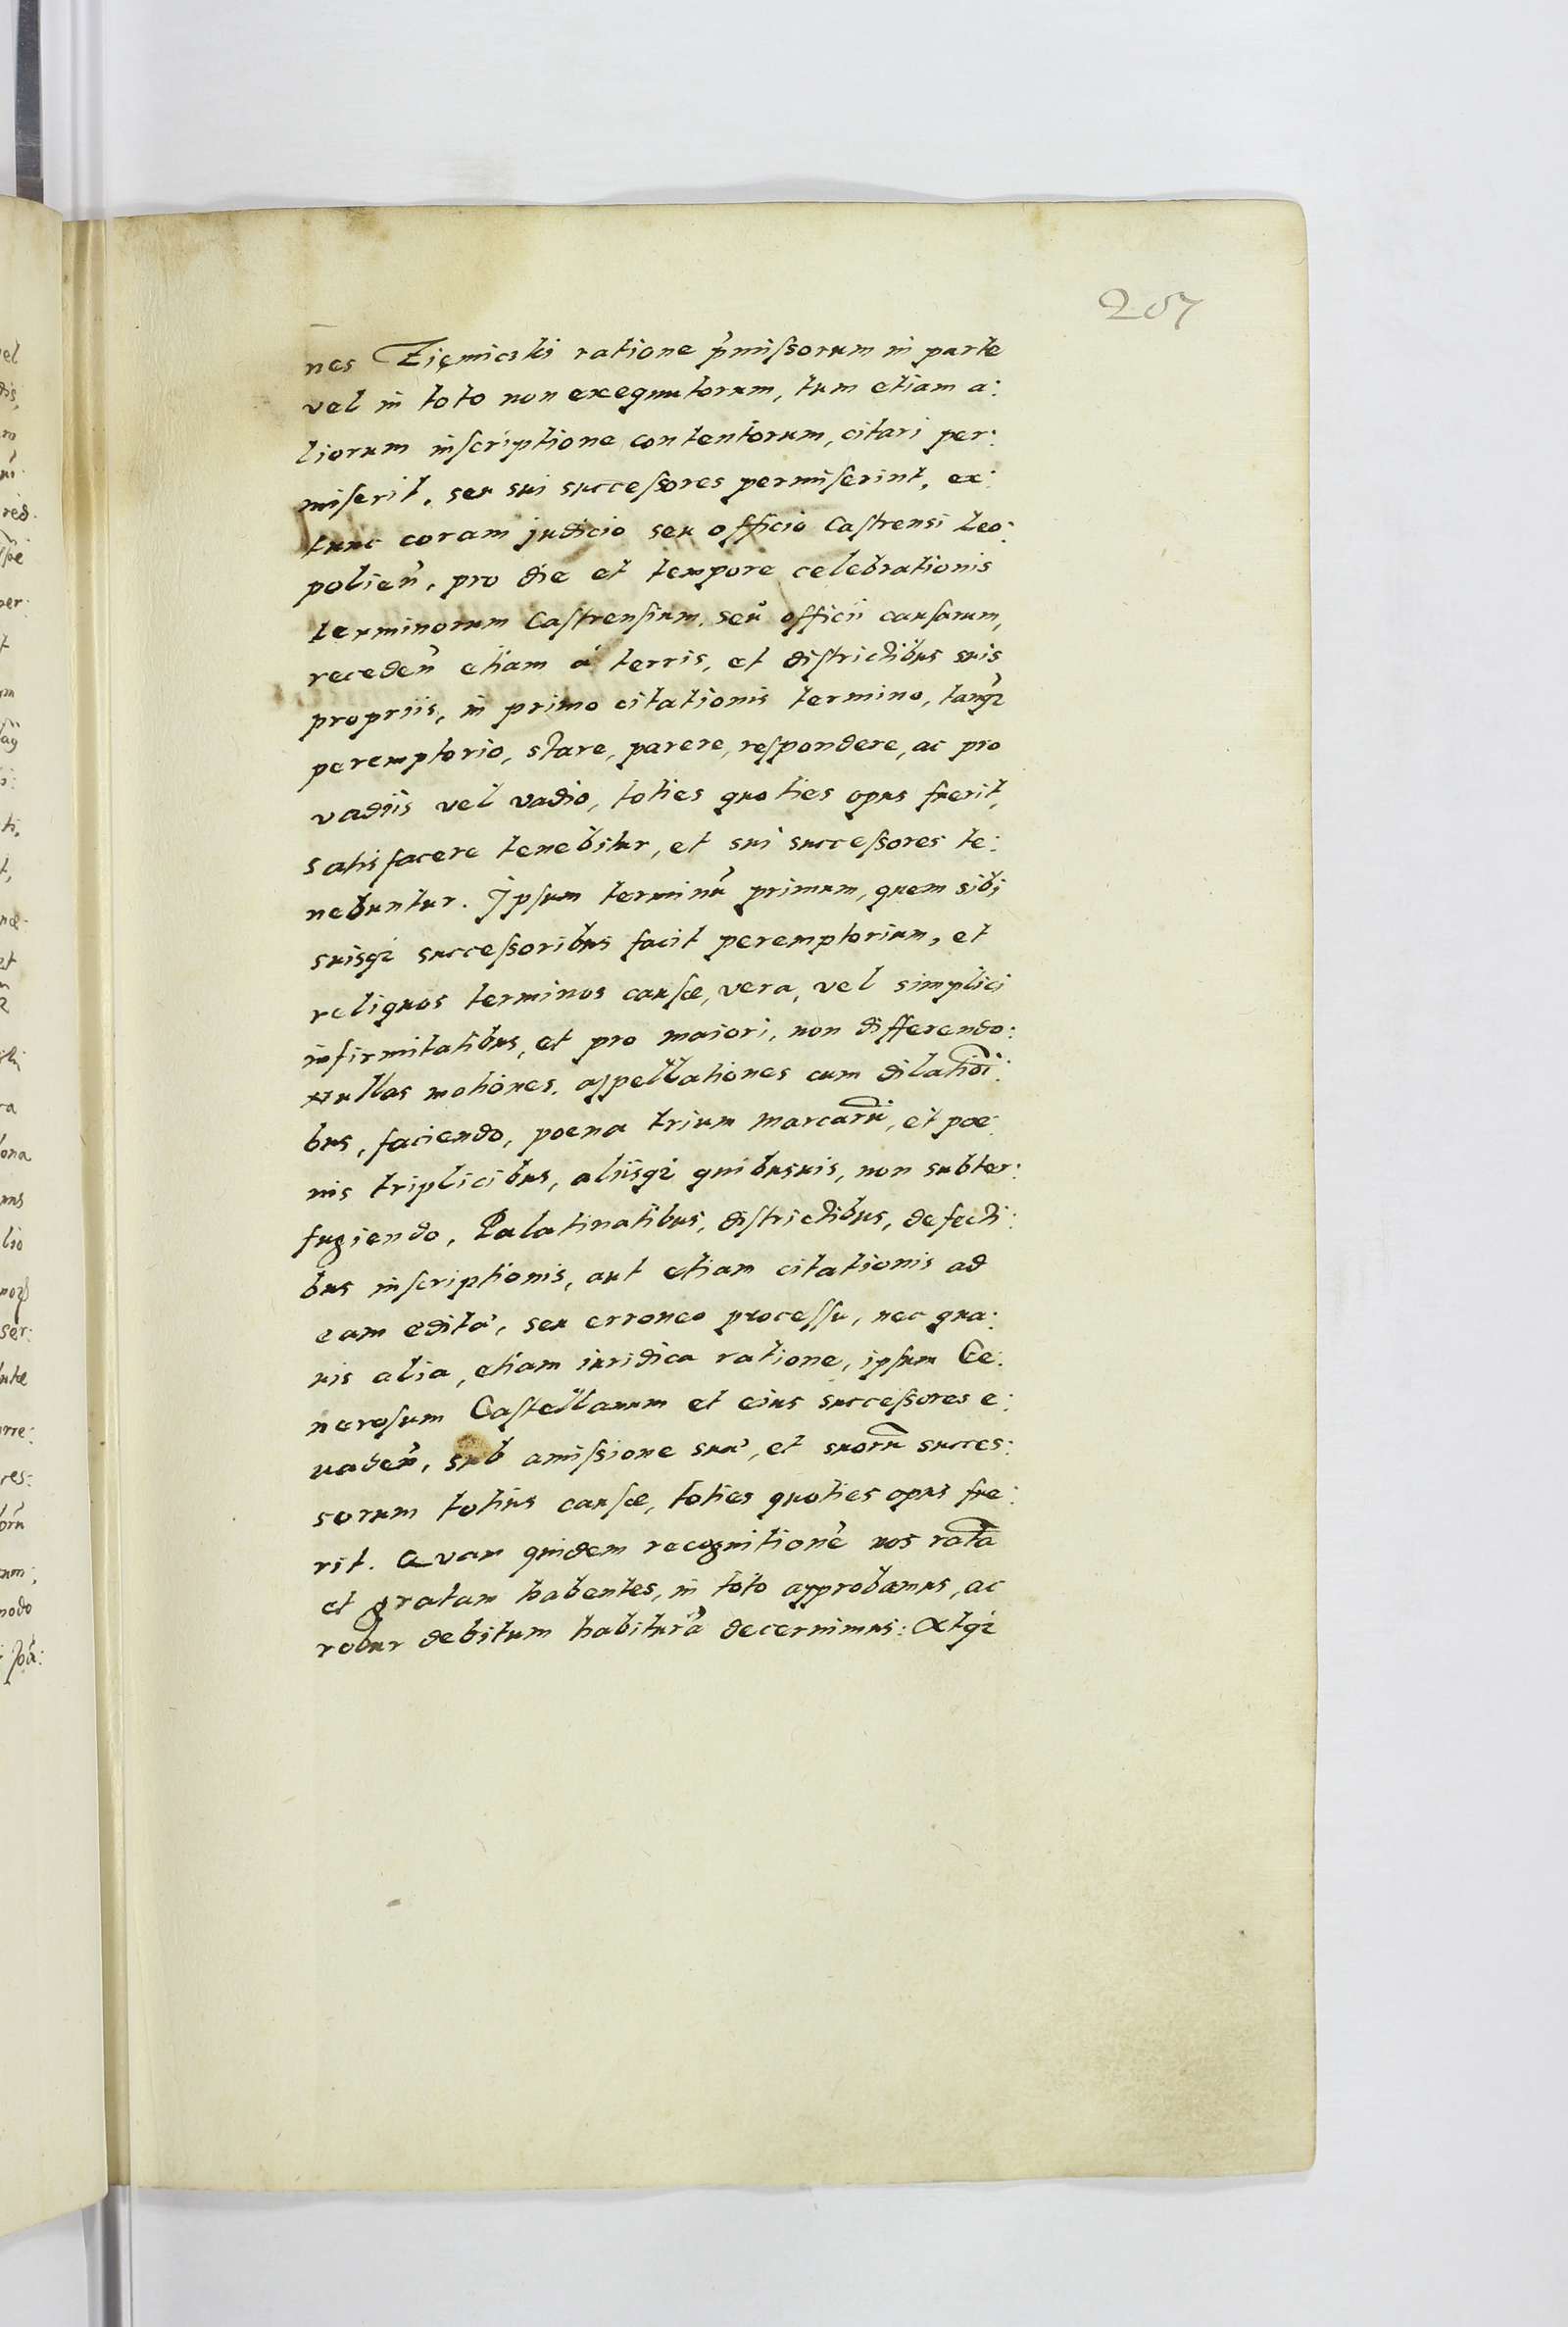 257
nes Zięmicski ratione p̃mißorum in parte
vel in toto non exequutorum, tum etiam a:
liorum inſcriptione contentorum, citari per:
miſerit, seu sui succeßores permiſerint, ex:
tunc coram judicio seu officio Caſtrensi Leo:
polien̄, pro die et tempore celebrationis
terminorum Caſtrenſium, seu officii cauſarum,
receden̄ etiam à terris, et diſtrictibus suis
propriis, in primo citationis termino, tanq̃
peremptorio, stare, parere, reſpondere, ac pro
vadiis vel vadio, toties quoties opus fuerit,
satisfacere tenebitur, et sui succeßores te:
nebuntur. Ipſum terminũ primum, quem sibi
suisq; succeßoribus facit peremptorium, et
reliquos terminos cauſæ, vera, vel simplici
infirmitatibus, et pro maiori, non differendo:
nullas motiones, appellationes cum dilatiōi:
bus, faciendo, poena trium marcarũ, et poe
nis triplicibus, aliisq; quibusuis, non subter:
fugiendo, Palatinatibus, diſtrictibus, defecti:
bus inſcriptionis, aut etiam citationis ad
eam edità, seu erroneo proceſſu, nec qua:
uis alia, etiam iuridica ratione, ipſum Ge:
neroſum Caſtellanum et eius succeßores e:
uaden̄, sub amißione suà, et suorũ succes:
sorum totius cauſæ, toties quoties opus fue:
rit. Quam quidem recognitionẽ nos ratã
et gratam habentes, in toto approbamus, ac
robur debitum habiturã decernimus: Atq;